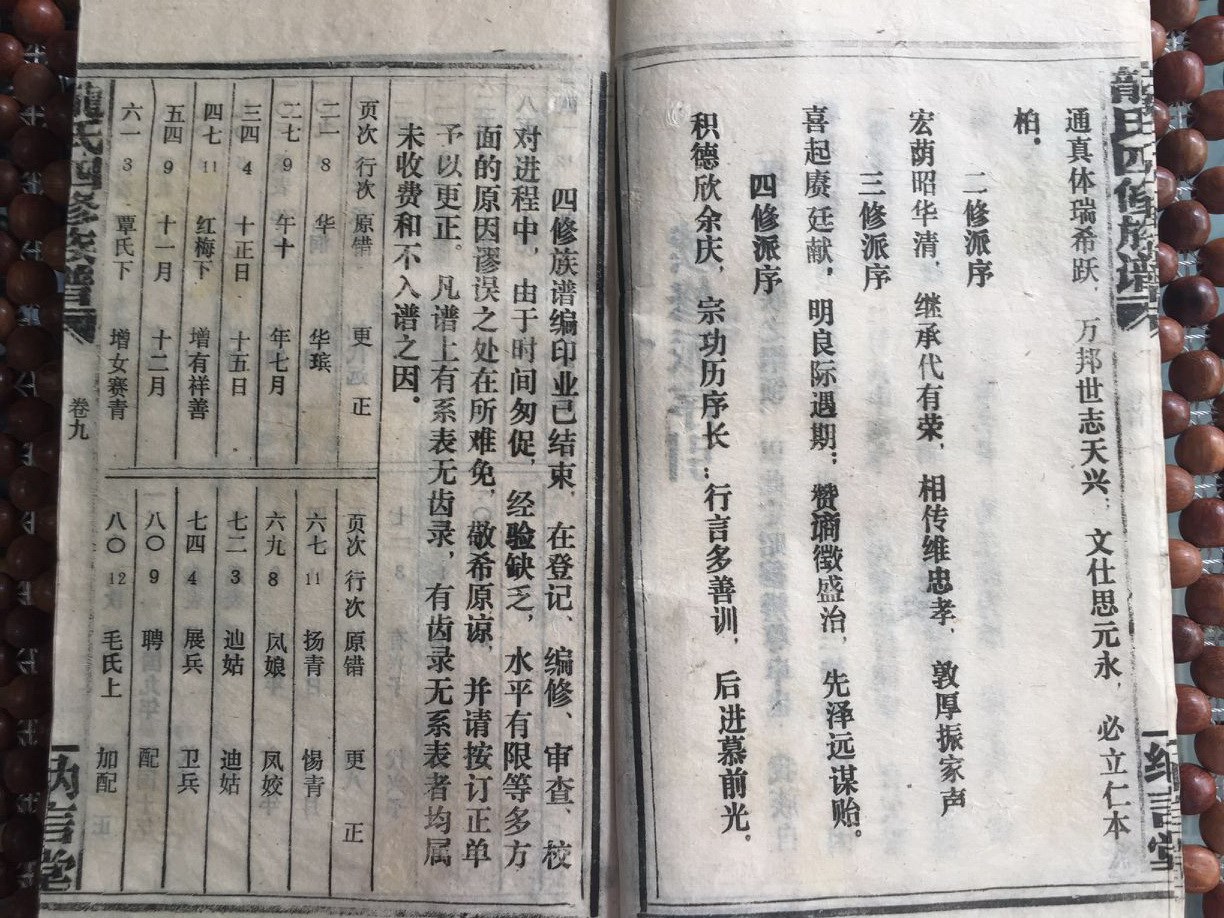 龍氏四修族谱
纳言堂
通真体瑞希跃，万邦世志天兴；文仕思元永，必立仁本
柏。
二修派序
宏荫昭华清，继承代有荣，相传维忠孝，敦厚振家声
三修派序
喜起赓廷献，明良际遇期；赞谪徵盛治，先泽远谋贻。
四修派序
积德欣余庆，宗功历序长；行言多善训，后进慕前光。
四修族谱编印业已结束，在登记、编修、审查、校
对进程中，由于时间匆促，经验缺乏，水平有限等多方
面的原因谬误之处在所难免，敬希原谅，并请按订正单
予以更正。凡谱上有系表无齿录，有齿录无系表者均属
未收费和不入谱之因。
页次 行次 原错 更正
二一 8 华 华瑸
二七 9 午十 年七月
三四 4 十正日 十五日
四七 11 红梅下 增有祥善
五四 9 十一月 十二月
六一 3 覃氏下 增女赛青
页次 行次 原错 更正
六七 11 扬青 惕青
六九 8 凤娘 凤姣
七二 3 迪姑 迪姑
七四 4 展兵 卫兵
八〇 9 聘 配
八〇 12 毛氏上 加配
龍氏四修族谱
卷九
纳言堂